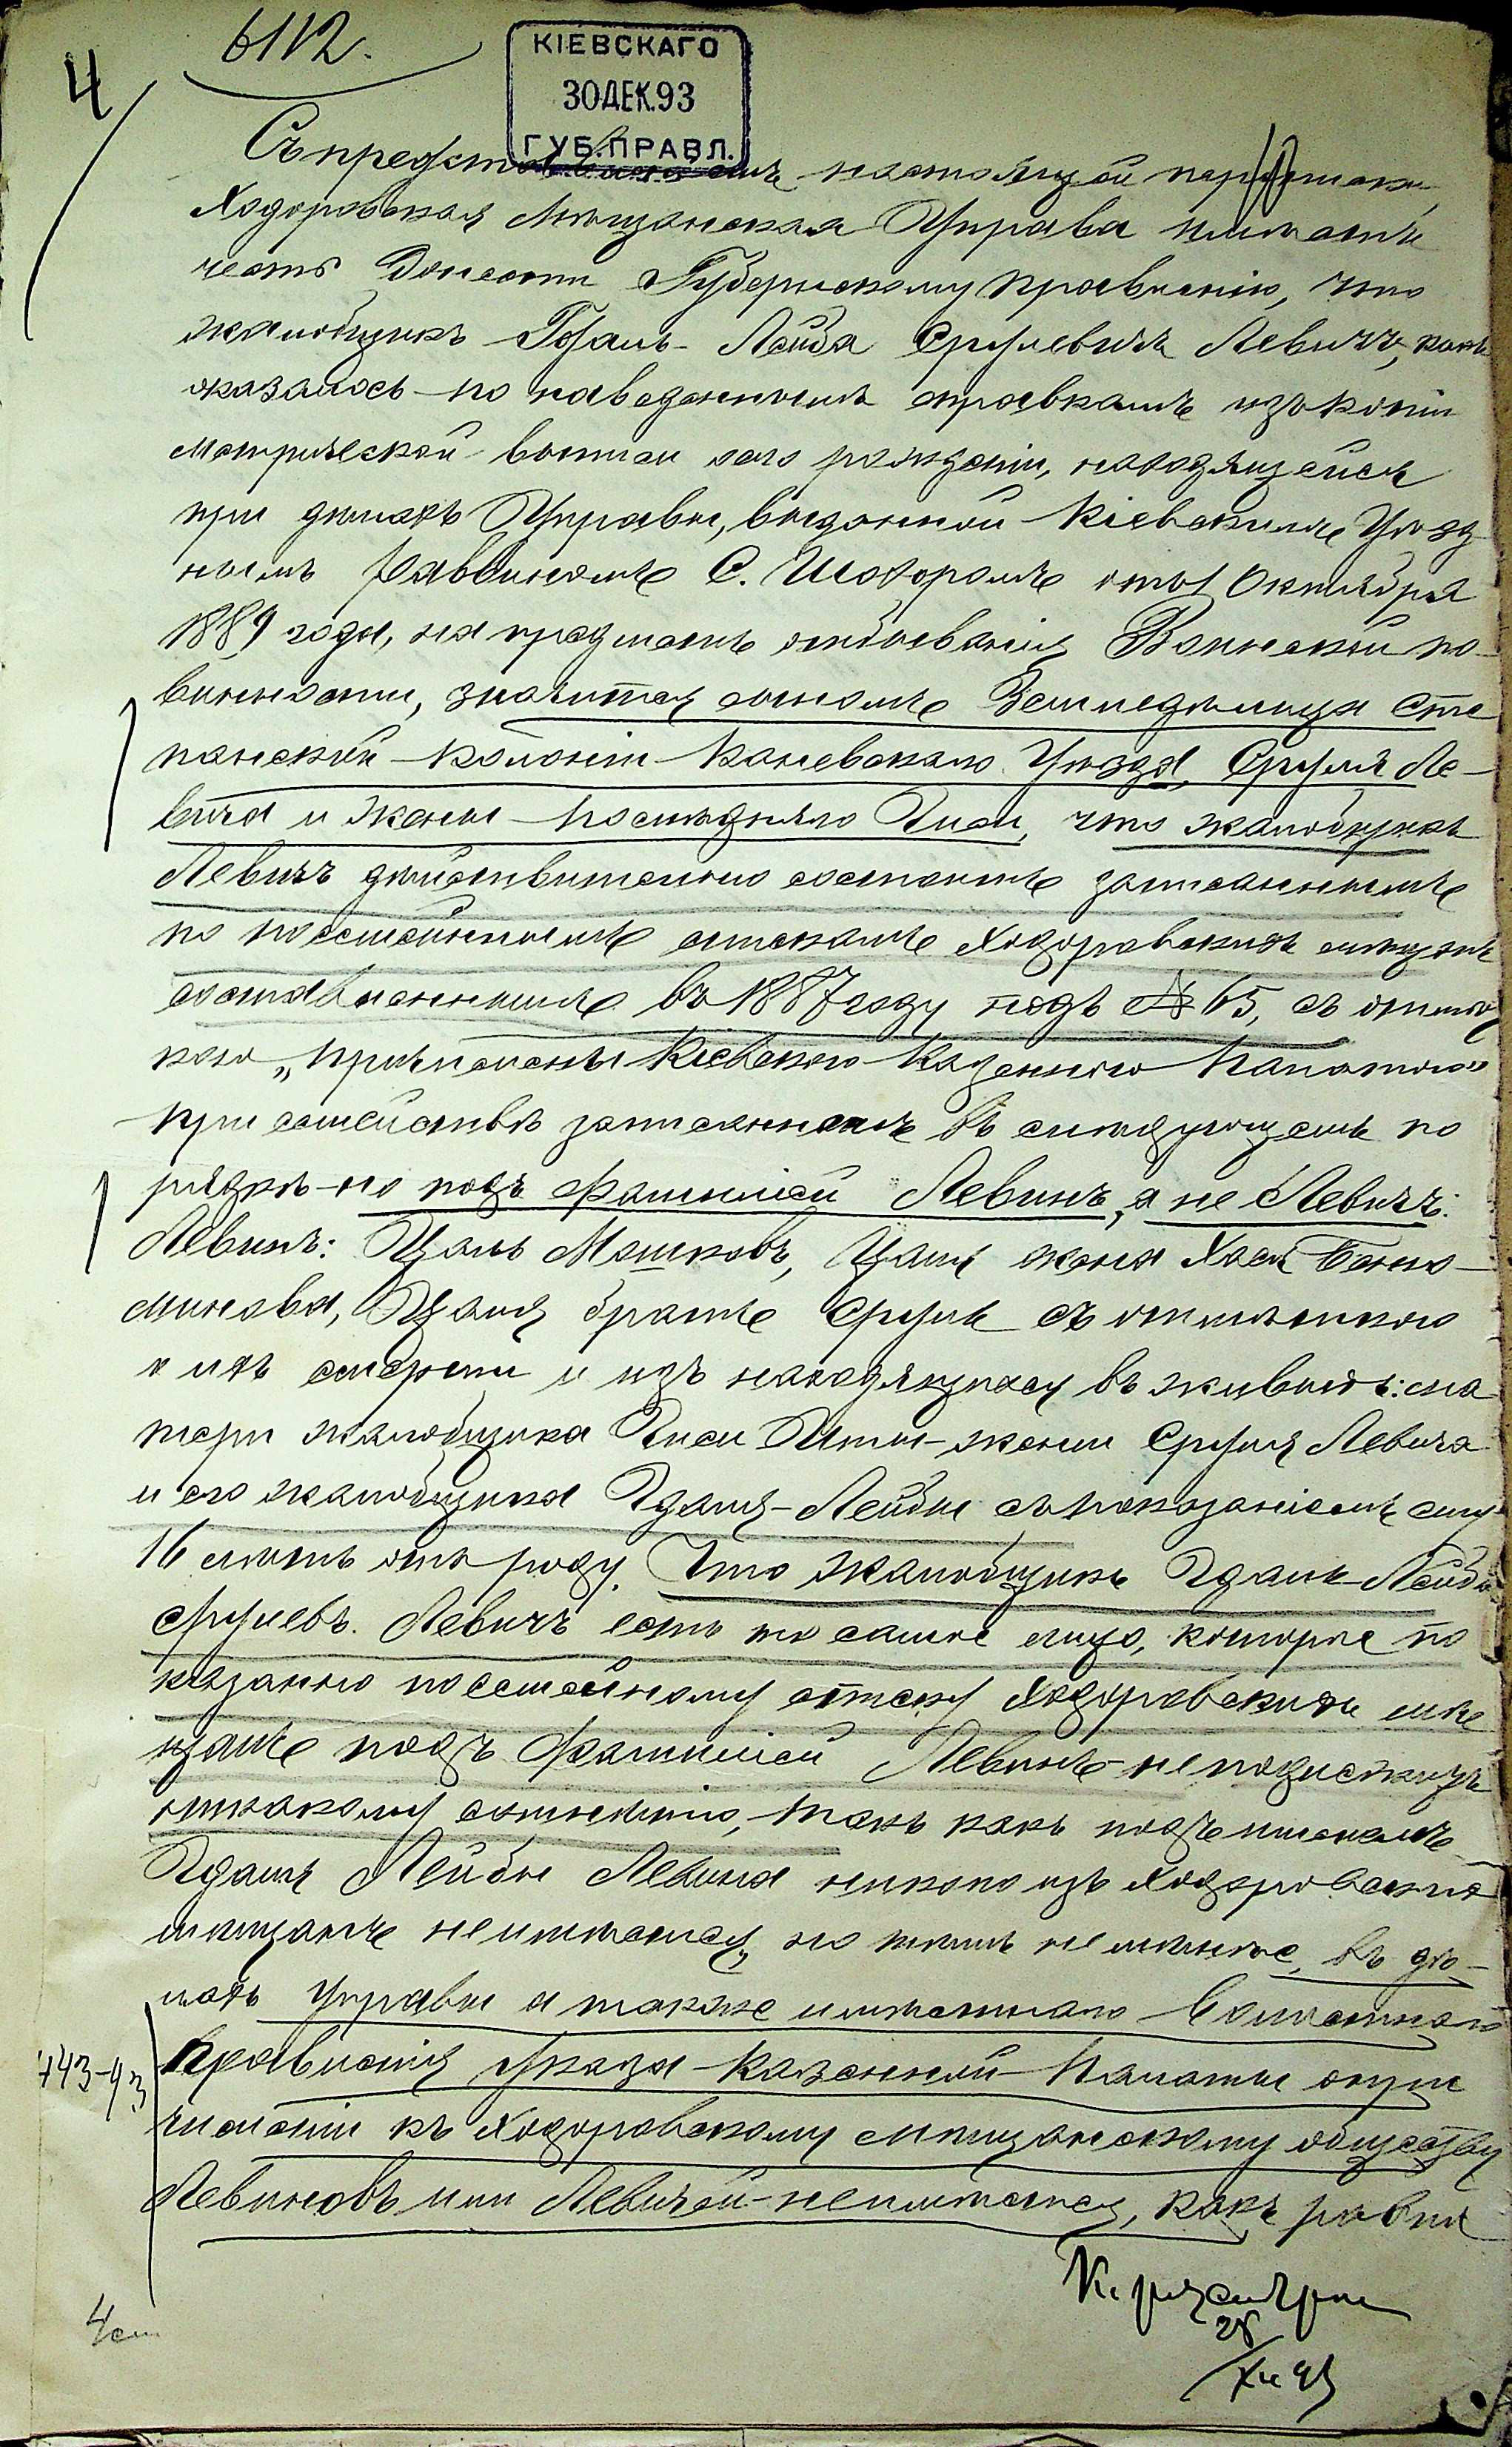 4
6112.
КІЕВСКАГО
30 ДЕК. 93
ГУБ. ПРАВЛ.
Съ представленіемъ настоящей переписки,
Ходоровская Мѣщанская Управа имѣетъ
честь донести Губернскому Правленію, что
жалобщикъ Гдаль-Лейба Срулевичъ Левичъ, какъ
оказалось по наведеннымъ справкамъ изъ копіи
метрической выписи о его рожденіи, находящейся
при дѣлахъ Управы, выданной Кіевскимъ Уѣзд-
нымъ Раввиномъ С. отъ 1 Октября
1889 года, на предметъ отбыванія Воинской по-
винности, значится сыномъ Земледѣльца Сте
панской колоніи Каневскаго Уѣзда, Сруля Ле-
вича и жены послѣдняго Енты, что жалобщикъ
Левичъ дѣйствительно состоитъ записаннымъ
по посемейнымъ спискамъ Ходоровскихъ мѣщанъ
составленнымъ въ 1887 году подъ № 65, съ отмѣт
кою „ Кіевскою Казенною Палатою"
при семействѣ записанномъ въ слѣдующемъ по
рядкѣ но подъ фамиліей Левинъ, а не Левичъ:
Левинъ: Мошковъ, жена Хая Беньо-
минова, братъ Сруль съ отмѣткою
о ихъ смерти и изъ находящихся въ живыхъ: ма
тери жалобщика жены Сруля Левича
и его жалобщика Гдаля-Лейбы съ показаніемъ ему
16 лѣтъ отъ роду. Что жалобщикъ Гдаль-Лейба
Срулевъ. Левичъ есть то самое лицо, которое по
казано по семейному списку Ходоровскихъ мѣ
щанъ подъ фамиліей Левинъ не подлежитъ
никакому сомнѣнію, такъ какъ подъ именемъ
Гдаля Лейбы Левина никого изъ Ходоровскихъ
мѣщанъ не имѣется, но тѣмъ не менѣе, въ дѣ-
лахъ Управы а также и мѣстнаго Волостнаго
Правленія Указа Казенной Палаты о при
численіи къ Ходоровскому мѣщанскому обществу
Левиновъ или Левичей не имѣется, какъ равно
443-93
4 ст
К. разсмотрѣн
28
XII 93